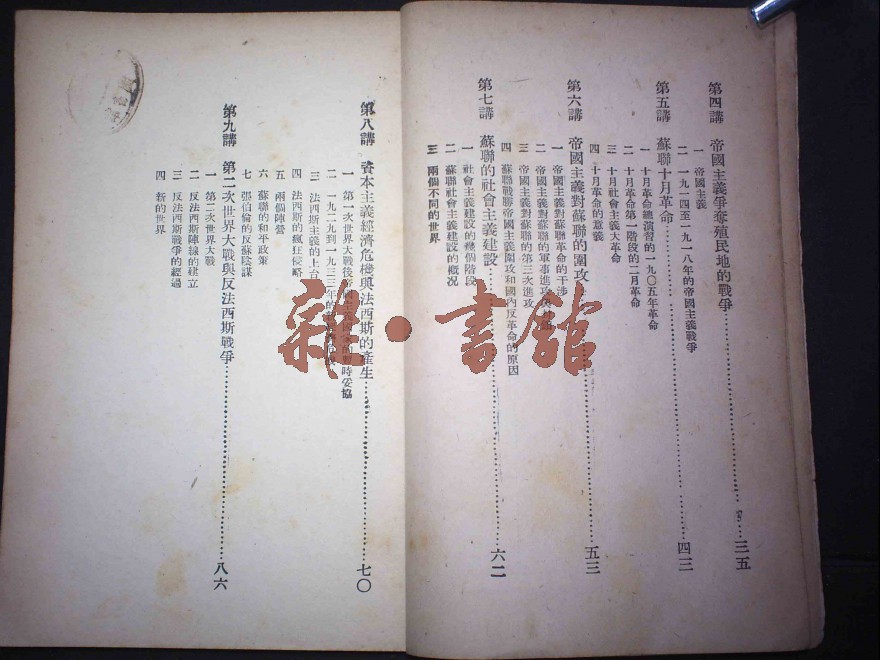 第四講 帝國主義爭奪殖民地的戰爭……三五
一 帝國主義
二 一九一四至一九一八年的帝國主義戰爭
第五講 蘇聯十月革命……四三
一 十月革命總演習的一九〇五年革命
二 十月革命第一階段的二月革命
三 十月社會主義大革命
四 十月革命的意義
第六講 帝國主義對蘇聯的圍攻……五三
一 帝國主義對蘇聯革命的干涉
二 帝國主義對蘇聯的軍事進攻
三 帝國主義對蘇聯的第三次進攻
四 蘇聯戰勝帝國主義圍攻和國內反革命的原因
第七講 蘇聯的社會主義建設……六二
一 社會主義建設的幾個階段
二 蘇聯社會主義建設的概况
三 兩個不同的世界
第八講 資本主義經濟危機與法西斯的產生……七〇
一 第一次世界大戰後帝國主義國家的暫時妥協
二 一九二九到一九三三年的
三 法西斯主義的上台
四 法西斯的瘋狂侵略
五 兩個陣營
六 蘇聯的和平政策
七 張伯倫的反蘇陰謀
第九講 第二次世界大戰與反法西斯戰爭……八六
一 第二次世界大戰
二 反法西斯陣線的建立
三 反法西斯戰爭的經過
四 新的世界
雜·書館